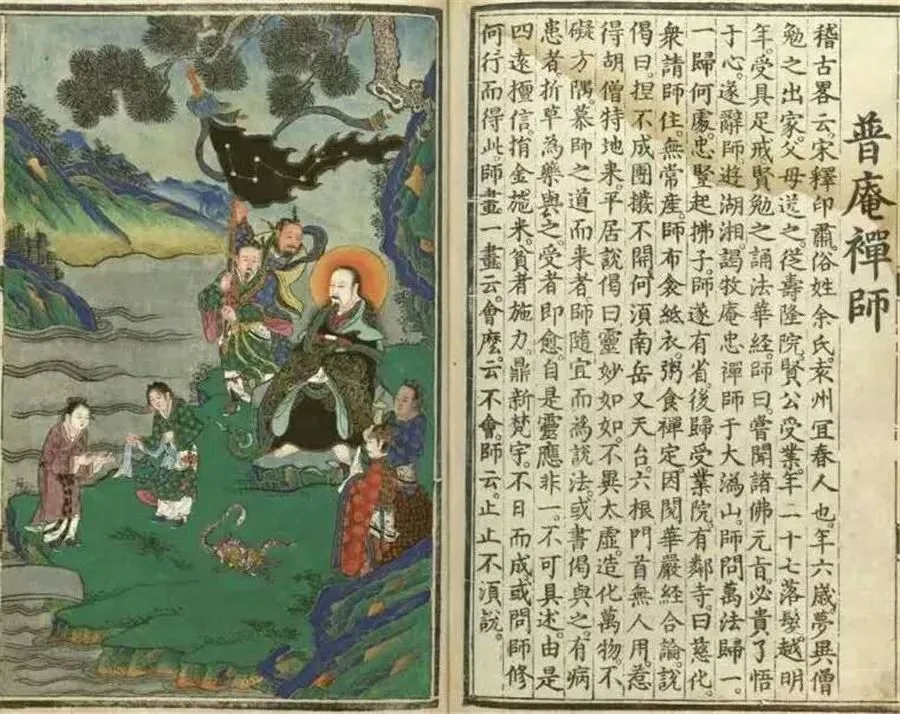 普庵禪師
稽古畧云。宋釋印肅。俗姓余氏。袁州宜春人也。年六歲。夢異僧
勉之出家。父母送之。從壽隆院賢公受業。年二十七落髮。越明
年。受具足戒。賢勉之誦法華經。師曰。嘗聞諸佛元旨。必貴了悟
于心。遂辭師。遊湖湘。謁牧庵忠禪師于大溈山。師問萬法歸一。
一歸何處。忠豎起拂子。師遂有省。後歸受業院。有鄰寺。曰慈化。
衆請師住。無常產。師布衾紙衣。粥食禪定。因閱華嚴經合論。說
偈曰。捏不成團撥不開。何湏南岳又天台。六根門首無人用。惹
得胡僧特地来。平居說偈曰。靈妙如如。不異太虛。造化萬物。不
礙方隅。慕師之道而来者。師隨宜而為說法。或書偈與之。有病
患者。折草為藥與之。受者即愈。自是靈應非一。不可具述。由是
四遠檀信。捐金施米。貧者施力。鼎新梵宇。不日而成。或問師修
何行而得此。師畫一畫云。會麽。云不會。師云。止止不湏說。